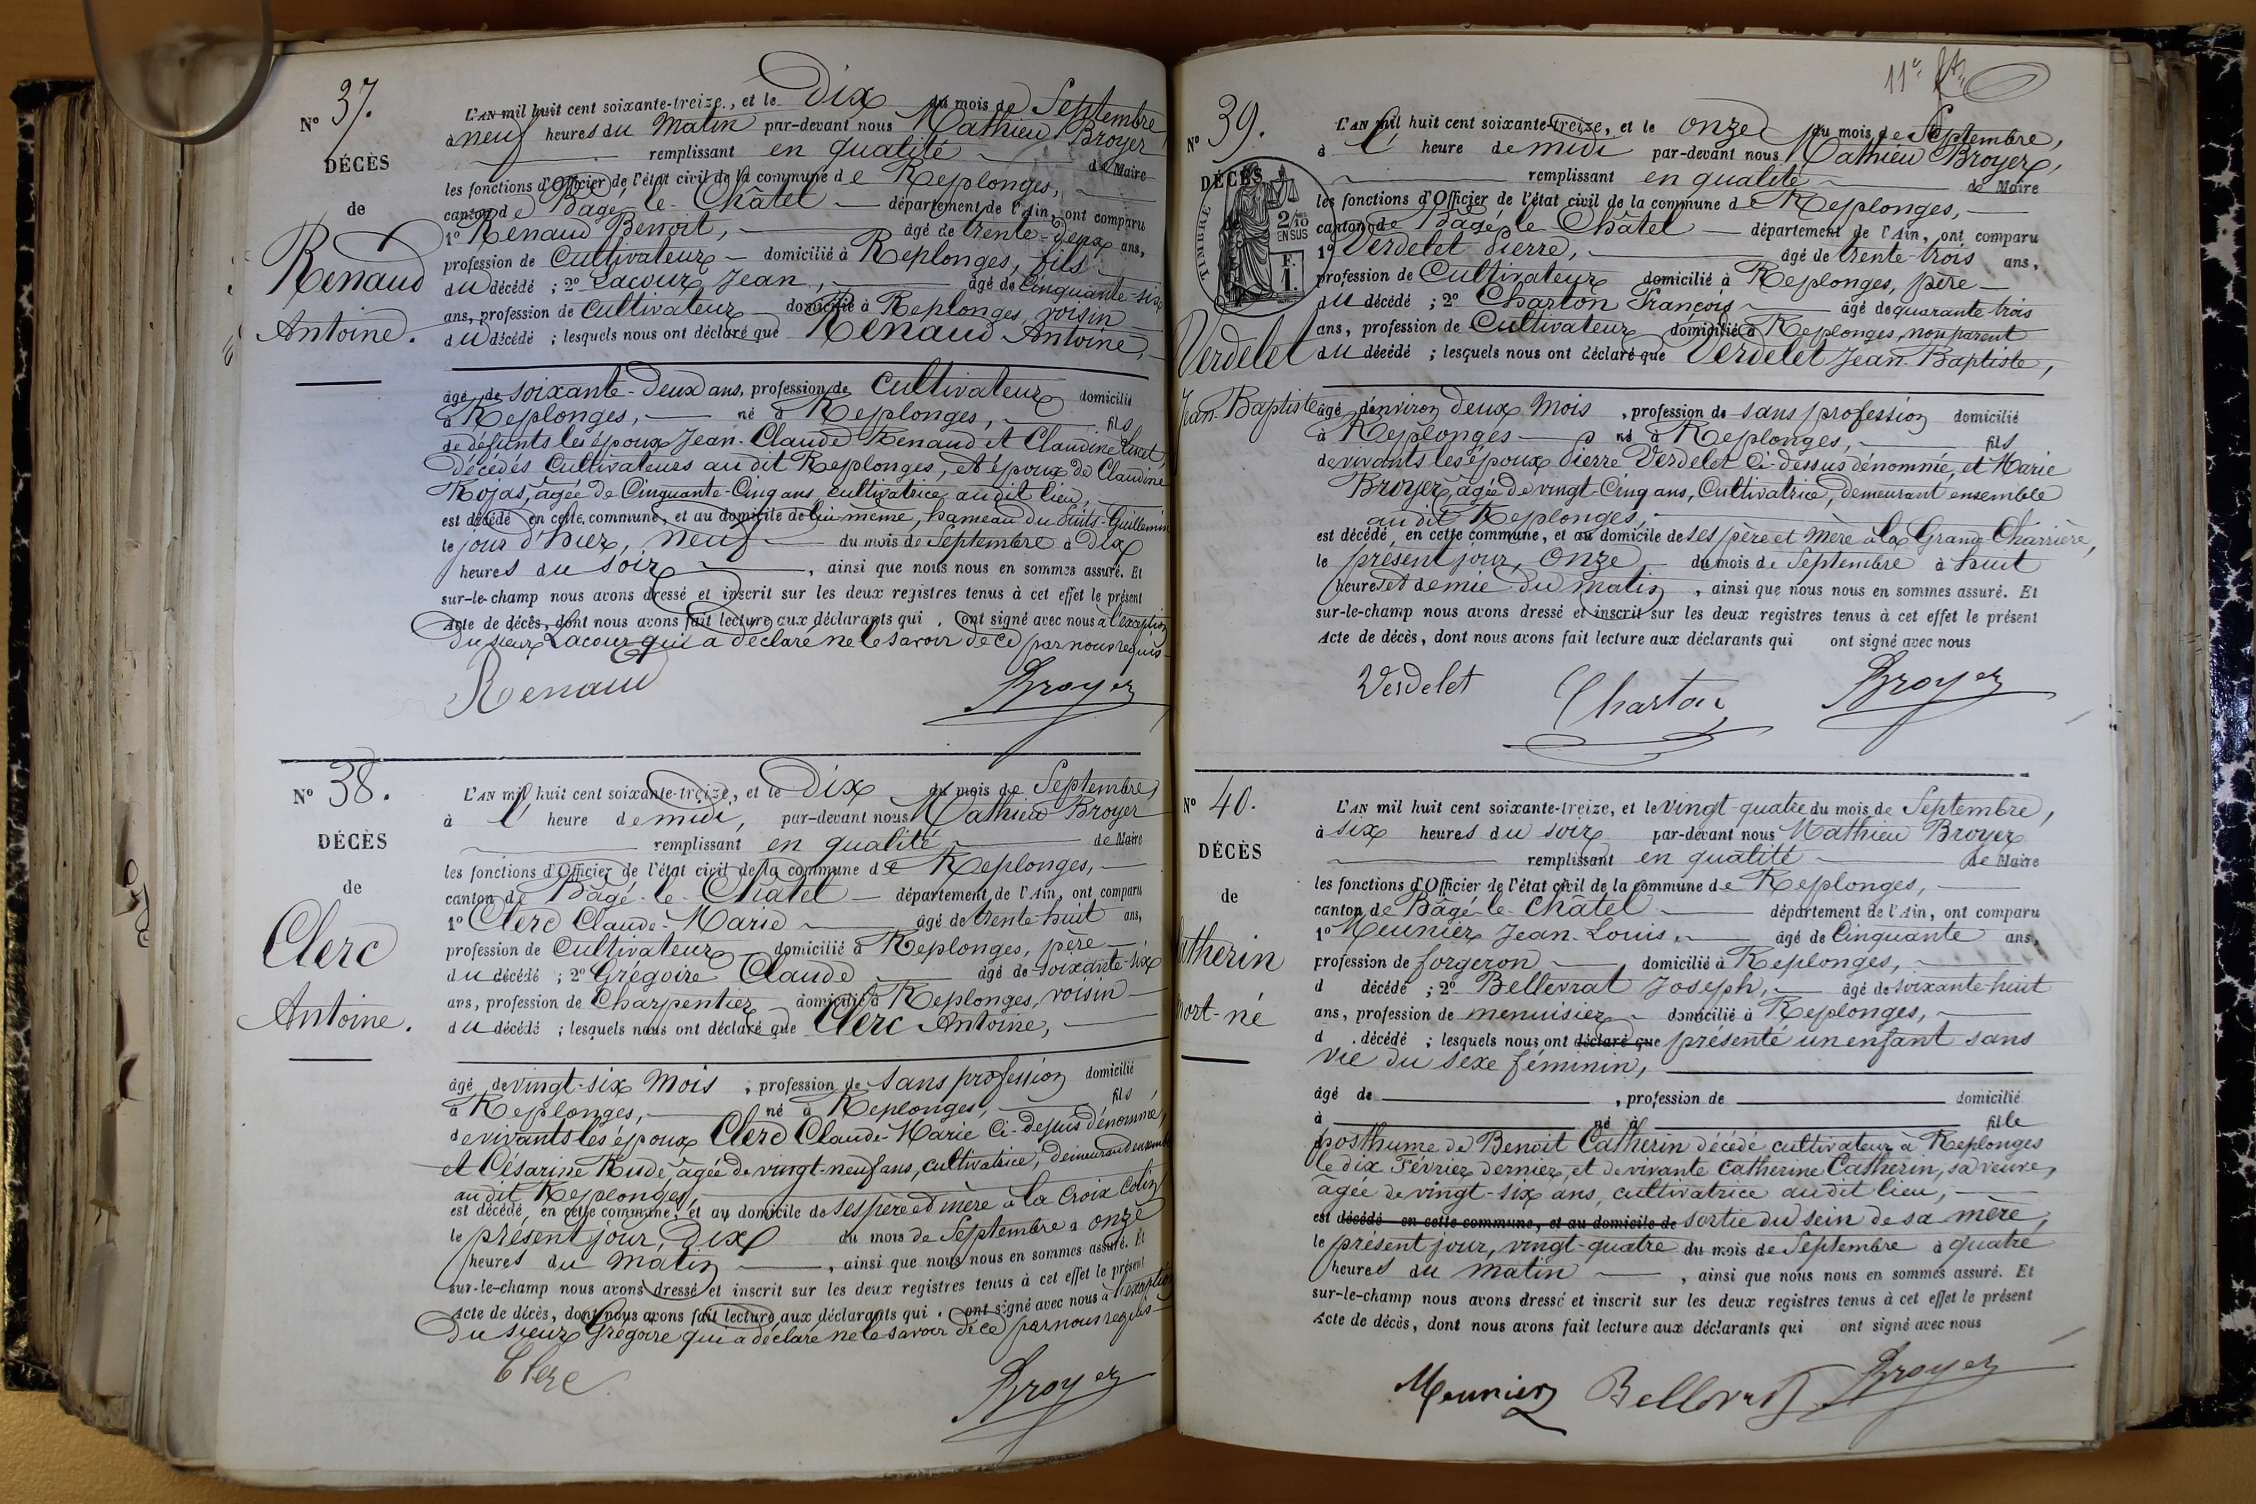 N° 37.
DÉCÈS
de
Renaud
Antoine.
L'AN mil huit cent soixante-treize, et le Dix du mois de Septembre
à neuf heures du Matin par-devant nous Mathieu Broyer
remplissant en qualité de Maire
les fonctions d'Officier de l'état civil de la commune de Replonges,
canton de Bâgé-le-Châtel département de l'Ain, ont comparu
1° Renaud Benoit, âgé de trente-deux ans,
profession de Cultivateur domicilié à Replonges, fils
du décédé ; 2° Lacour Jean, âgé de Cinquante-six
ans, profession de Cultivateur domicilié à Replonges, voisin
du décédé ; lesquels nous ont déclaré que Renaud Antoine,
âgé de soixante-Deux ans, profession de Cultivateur domicilié
à Replonges, né à Replonges, fils
de défunts les époux Jean-Claude Renaud et Claudine
Décédés Cultivateurs au dit Replonges, et époux de Claudine
Rojas, âgée de Cinquante-Cinq ans, cultivatrice au dit lieu,
est décédé en cette commune, et au domicile de lui même, hameau du Puits-Guillemin
le jour d'hier, neuf du mois de Septembre à Dix
heures du soir, ainsi que nous nous en sommes assuré. Et
sur-le-champ nous avons dressé et inscrit sur les deux registres tenus à cet effet le présent
Acte de décès, dont nous avons fait lecture aux déclarants qui ont signé avec nous à l'exception
Du sieur Lacour qui a déclaré ne le savoir de ce par nous requis
Renaud Broyer
N° 38.
DÉCÈS
de
Clerc
Antoine.
L'AN mil huit cent soixante-treize, et le Dix du mois de Septembre,
à l' heure de midi, par-devant nous Mathieu Broyer
remplissant en qualité de Maire
les fonctions d'Officier de l'état civil de la commune de Replonges,
canton de Bâgé-le-Châtel département de l'Ain, ont comparu
1° Clerc Claude-Marie âgé de trente-huit ans,
profession de Cultivateur domicilié à Replonges, père
du décédé ; 2° Grégoire Claude âgé de soixante-six
ans, profession de Charpentier domicilié à Replonges, voisin
du décédé ; lesquels nous ont déclaré que Clerc Antoine,
âgé de vingt-six Mois, profession de sans profession domicilié
à Replonges, né à Replonges, fils
de vivants les époux Clerc Claude-Marie Ci-dessus dénommé,
et Césarine Rude, âgée de vingt-neuf ans, cultivatrice, demeurant ensemble
au dit Replonges,
est décédé en cette commune, et au domicile de ses père et mère à la Croix Colin
le présent jour, Dix du mois de Septembre à onze
heures du Matin, ainsi que nous nous en sommes assuré. Et
sur-le-champ nous avons dressé et inscrit sur les deux registres tenus à cet effet le présent
Acte de décès, dont nous avons fait lecture aux déclarants qui ont signé avec nous à l'exception
Du sieur Grégoire qui a déclaré ne le savoir de ce par nous requis
Clerc Broyer
11e
N° 39.
DÉCÈS
TIMBRE
2/10
EN SUS
F.
1.
Verdelet
Jean-Baptiste
L'AN mil huit cent soixante-treize, et le onze du mois de Septembre,
à l' heure de midi par-devant nous Mathieu Broyer,
remplissant en qualité de Maire
les fonctions d'Officier de l'état civil de la commune de Replonges,
canton de Bâgé-le-Châtel département de l'Ain, ont comparu
1° Verdelet Pierre, âgé de trente-trois ans,
profession de Cultivateur domicilié à Replonges, père
du décédé ; 2° Charton François âgé de quarante trois
ans, profession de Cultivateur domicilié à Replonges, non parent
du décédé ; lesquels nous ont déclaré que Verdelet Jean-Baptiste,
âgé d'environ deux Mois, profession de sans profession domicilié
à Replonges né à Replonges, fils
de vivants les époux Pierre Verdelet Ci-dessus dénommé, et Marie
Broyer, âgée de vingt-Cinq ans, Cultivatrice, demeurant ensemble
au dit Replonges,
est décédé en cette commune, et au domicile de ses père et mère à la Grand Charrière,
le présent jour, onze du mois de Septembre à huit
heures et demie du matin, ainsi que nous nous en sommes assuré. Et
sur-le-champ nous avons dressé et inscrit sur les deux registres tenus à cet effet le présent
Acte de décès, dont nous avons fait lecture aux déclarants qui ont signé avec nous
Verdelet Charton Broyer
N° 40.
DÉCÈS
de
atherin
mort-né
L'AN mil huit cent soixante-treize, et le vingt-quatre du mois de Septembre,
à six heures du soir par-devant nous Mathieu Broyer
remplissant en qualité de Maire
les fonctions d'Officier de l'état civil de la commune de Replonges,
canton de Bâgé-le-Châtel département de l'Ain, ont comparu
1° Meunier Jean-Louis, âgé de Cinquante ans,
profession de forgeron domicilié à Replonges,
d décédé ; 2° Bellevrat Joseph, âgé de soixante-huit
ans, profession de menuisier domicilié à Replonges,
d décédé ; lesquels nous ont déclaré que présenté un enfant sans
vie du sexe féminin,
âgé de , profession de domicilié
à né à fille
posthume de Benoit Catherin décédé cultivateur à Replonges
le dix Février dernier, et de vivante Catherine Catherin, sa veuve,
âgée de vingt-six ans, cultivatrice au dit lieu,
est décédé en cette commune, et au domicile de sortie du sein de sa mère,
le présent jour, vingt-quatre du mois de Septembre à quatre
heures du matin, ainsi que nous nous en sommes assuré. Et
sur-le-champ nous avons dressé et inscrit sur les deux registres tenus à cet effet le présent
Acte de décès, dont nous avons fait lecture aux déclarants qui ont signé avec nous
Meunier Bellevrat Broyer